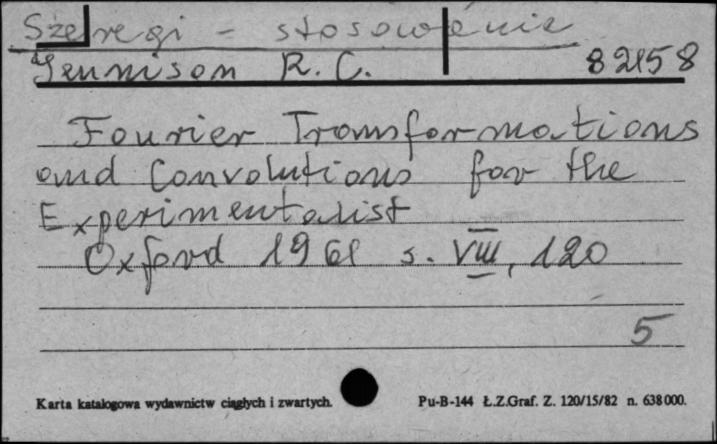 Szeregi - stosowanie
Jennison R. C. 82158
Fourier Transformations
and Convolutions for the
Experimentalist
Oxford 1961 s. VIII, 120
5
Karta katalogowa wydawnictw ciągłych i zwartych. Pu-B-144 Ł.Z.Graf. Z. 120/15/82 n. 638000.